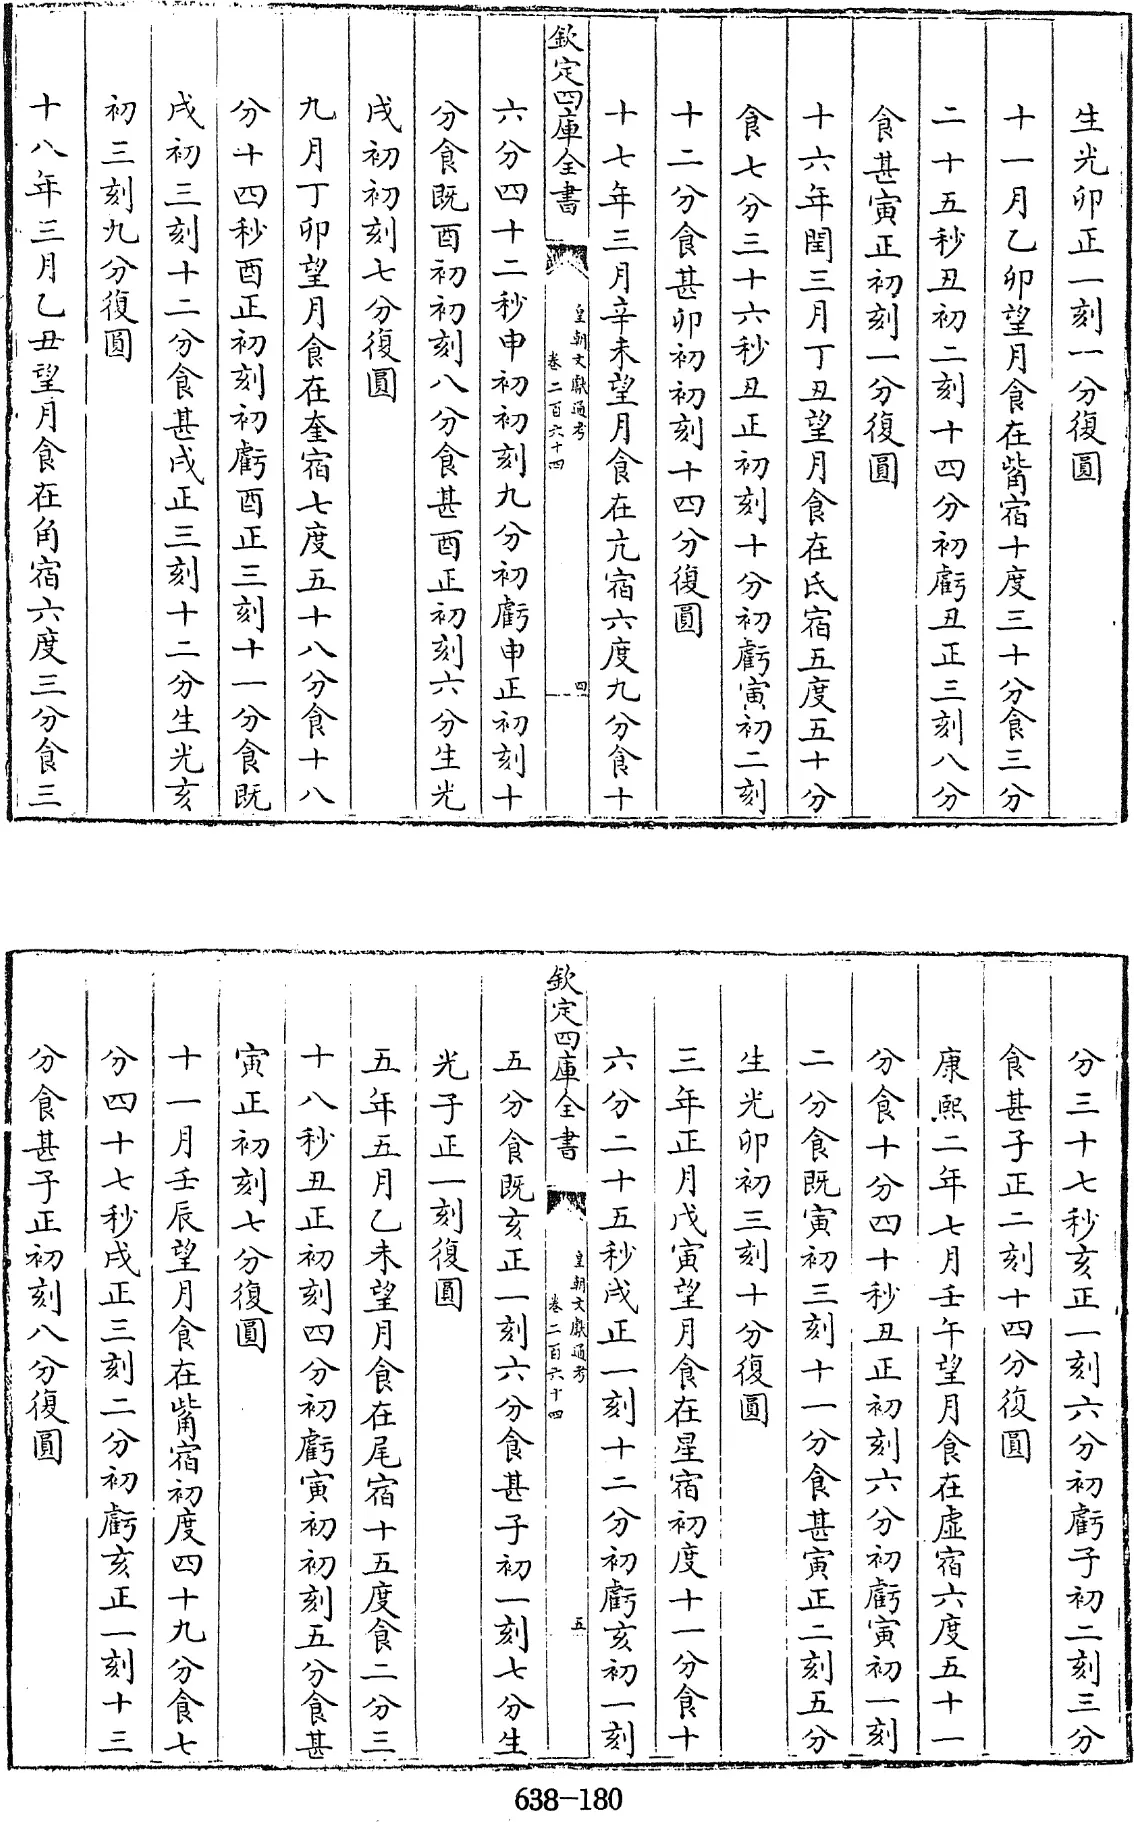 生光卯正一刻一分復圓
十一月乙卯望月食在觜宿十度三十分食三分
二十五秒丑初二刻十四分初虧丑正三刻八分
食甚寅正初刻一分復圓
十六年閏三月丁丑望月食在氐宿五度五十分
食七分三十六秒丑正初刻十分初虧寅初二刻
十二分食甚卯初初刻十四分復圓
十七年三月辛未望月食在亢宿六度九分食十
欽定四庫全書
皇朝文獻通考
卷二百六十四
四
六分四十二秒申初初刻九分初虧申正初刻十
分食既酉初初刻八分食甚酉正初刻六分生光
戌初初刻七分復圓
九月丁卯望月食在奎宿七度五十八分食十八
分十四秒酉正初刻初虧酉正三刻十一分食既
戌初三刻十二分食甚戌正三刻十二分生光亥
初三刻九分復圓
十八年三月乙丑望月食在角宿六度三分食三
分三十七秒亥正一刻六分初虧子初二刻三分
食甚子正二刻十四分復圓
康熙二年七月壬午望月食在虛宿六度五十一
分食十分四十秒丑正初刻六分初虧寅初一刻
二分食既寅初三刻十一分食甚寅正二刻五分
生光卯初三刻十分復圓
三年正月戊寅望月食在星宿初度十一分食十
六分二十五秒戌正一刻十二分初虧亥初一刻
欽定四庫全書
皇朝文獻通考
卷二百六十四
五
五分食既亥正一刻六分食甚子初一刻七分生
光子正一刻復圓
五年五月乙未望月食在尾宿十五度食二分三
十八秒丑正初刻四分初虧寅初初刻五分食甚
寅正初刻七分復圓
十一月壬辰望月食在觜宿初度四十九分食七
分四十七秒戌正三刻二分初虧亥正一刻十三
分食甚子正初刻八分復圓
638-180